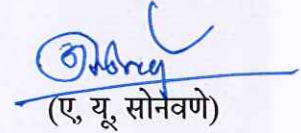 (ए, यू, सोनवणे)